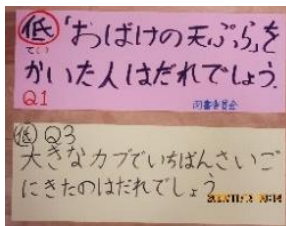 低「おばけの天ぷら」を
てい
かいた人はだれでしょう。
Q1
図書委員会
低 Q3
大きなカブでいちばんさいご
にきたのはだれでしょう